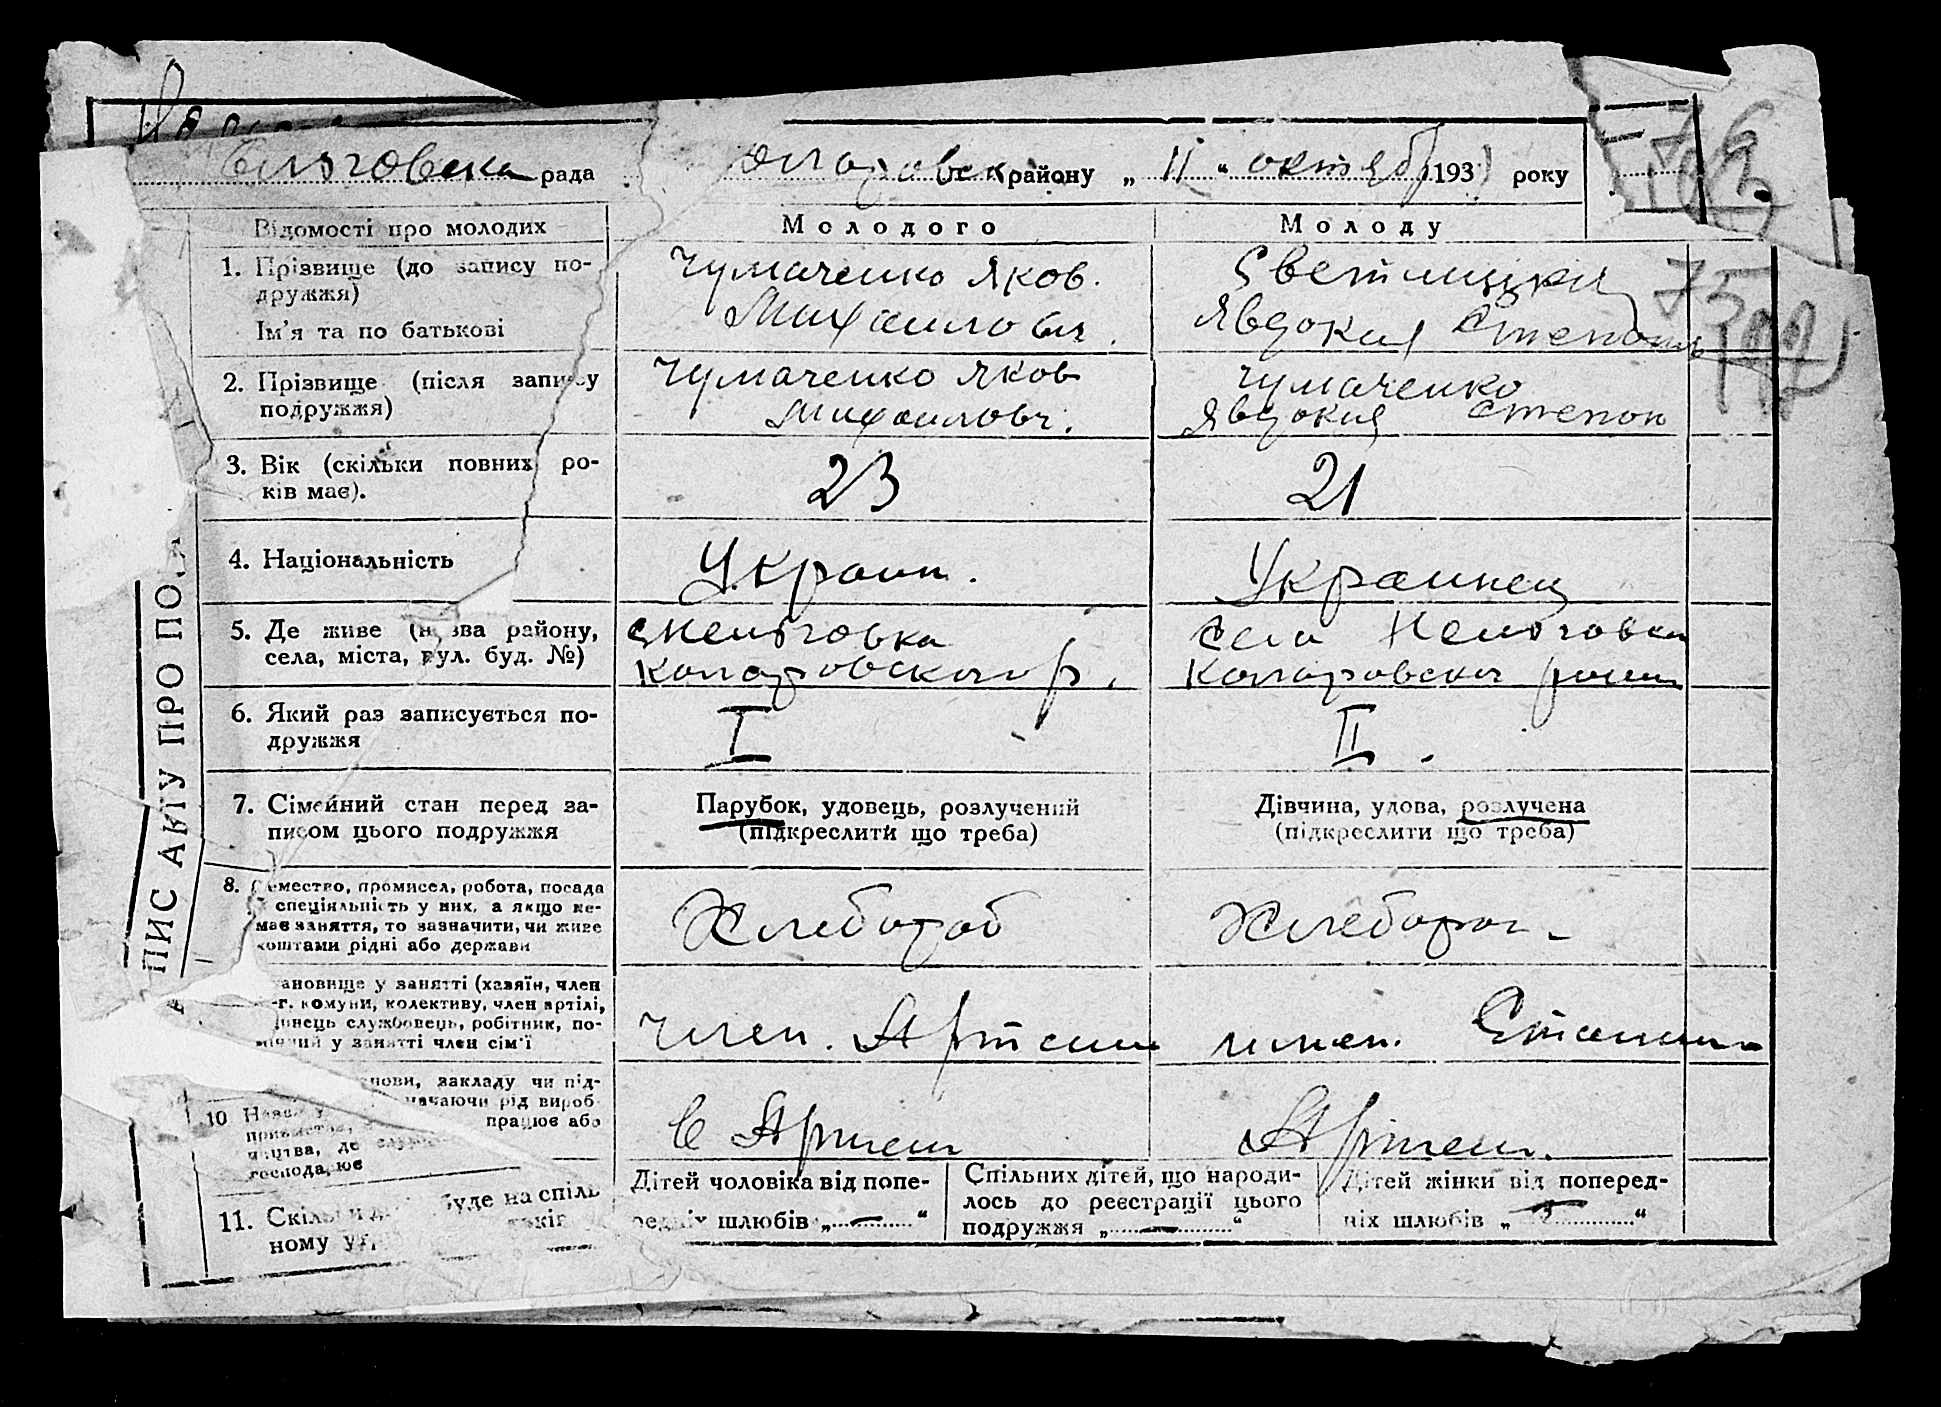 рада
району „ 11 “ октяб 193 року
Відомості про молодих
Молодого
Молоду
1. Прізвище (до запису по-
дружжя)
Ім’я та по батькові
Чумаченко Яков.
Михаилович.
Светлицки
Явдокия Степан
2. Прізвище (після запису
подружжя)
Чумаченко Яков
Михаилович.
Чумаченко
Явдокия Степон
3. Вік (скільки повних ро-
ків має).
23
21
4. Національність
Украин.
Украинец
5. Де живе (назва району,
села, міста, вул. буд. №)
Коларовского р.
село Нельговка
Коларовского
6. Який раз записується по-
дружжя
I
II.
7. Сімейний стан перед за-
писом цього подружжя
Парубок, удовець, розлучений
(підкреслити що треба)
Дівчина, удова, розлучена
(підкреслити що треба)
8. емество, промисел, робота, посада
спеціяльність у них, а якщо не-
має заняття, то зазначити, чи живе
коштами рідні або держави
Хлебороб
Хлебороб
ановище у занятті (хазяїн, член
-г. комуни, колективу, член артілі,
службовець, робітник, по-
у занятті член сім’ї
член. Артели
член.
10 Назва у нови, закладу чи під-
начаючи рід вироб-
ництва, де працює або
господарює
в Артели
Артели.
11. Скільки буде на спіль
ному
Дітей чоловіка від попе-
редніх шлюбів „ — “
Спільних дітей, що народи-
лось до реєстрації цього
подружжя „ — “
Дітей жінки від поперед-
ніх шлюбів „ “
ПИС АКТУ ПРО ПО
76
75